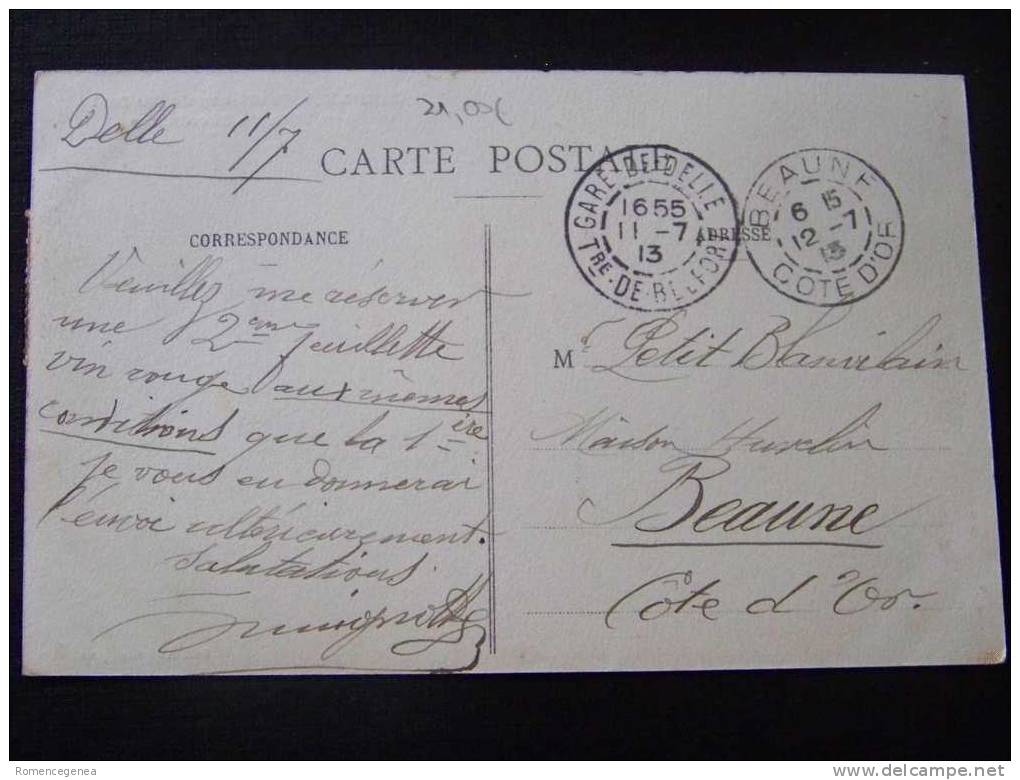 Delle 11/7
21,00€
CARTE POSTALE
CORRESPONDANCE
Veuillez me réserver
une 2eme feuillette
vin rouge aux mêmes
conditions que la 1ière
je vous en donnerai
l'envoi ultérieurement.
Salutations
GARE DE DELLE
1655
11 -7
13
Tre DE BELFORT
BEAUNE
6 15
12 -7
13
COTE D'OR
ADRESSE
M r Petit Blanvilain
Maison Huvelin
Beaune
Côte d'Or.
Romencegenea
www.delcampe.net